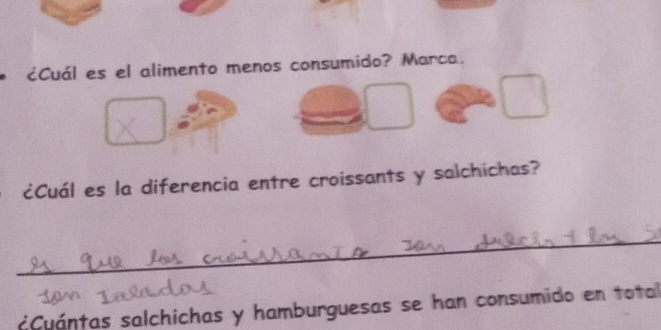 ¿Cuál es el alimento menos consumido? Marca.
X
¿Cuál es la diferencia entre croissants y salchichas?
es que los croissants son y las
son saladas
¿Cuántas salchichas y hamburguesas se han consumido en total